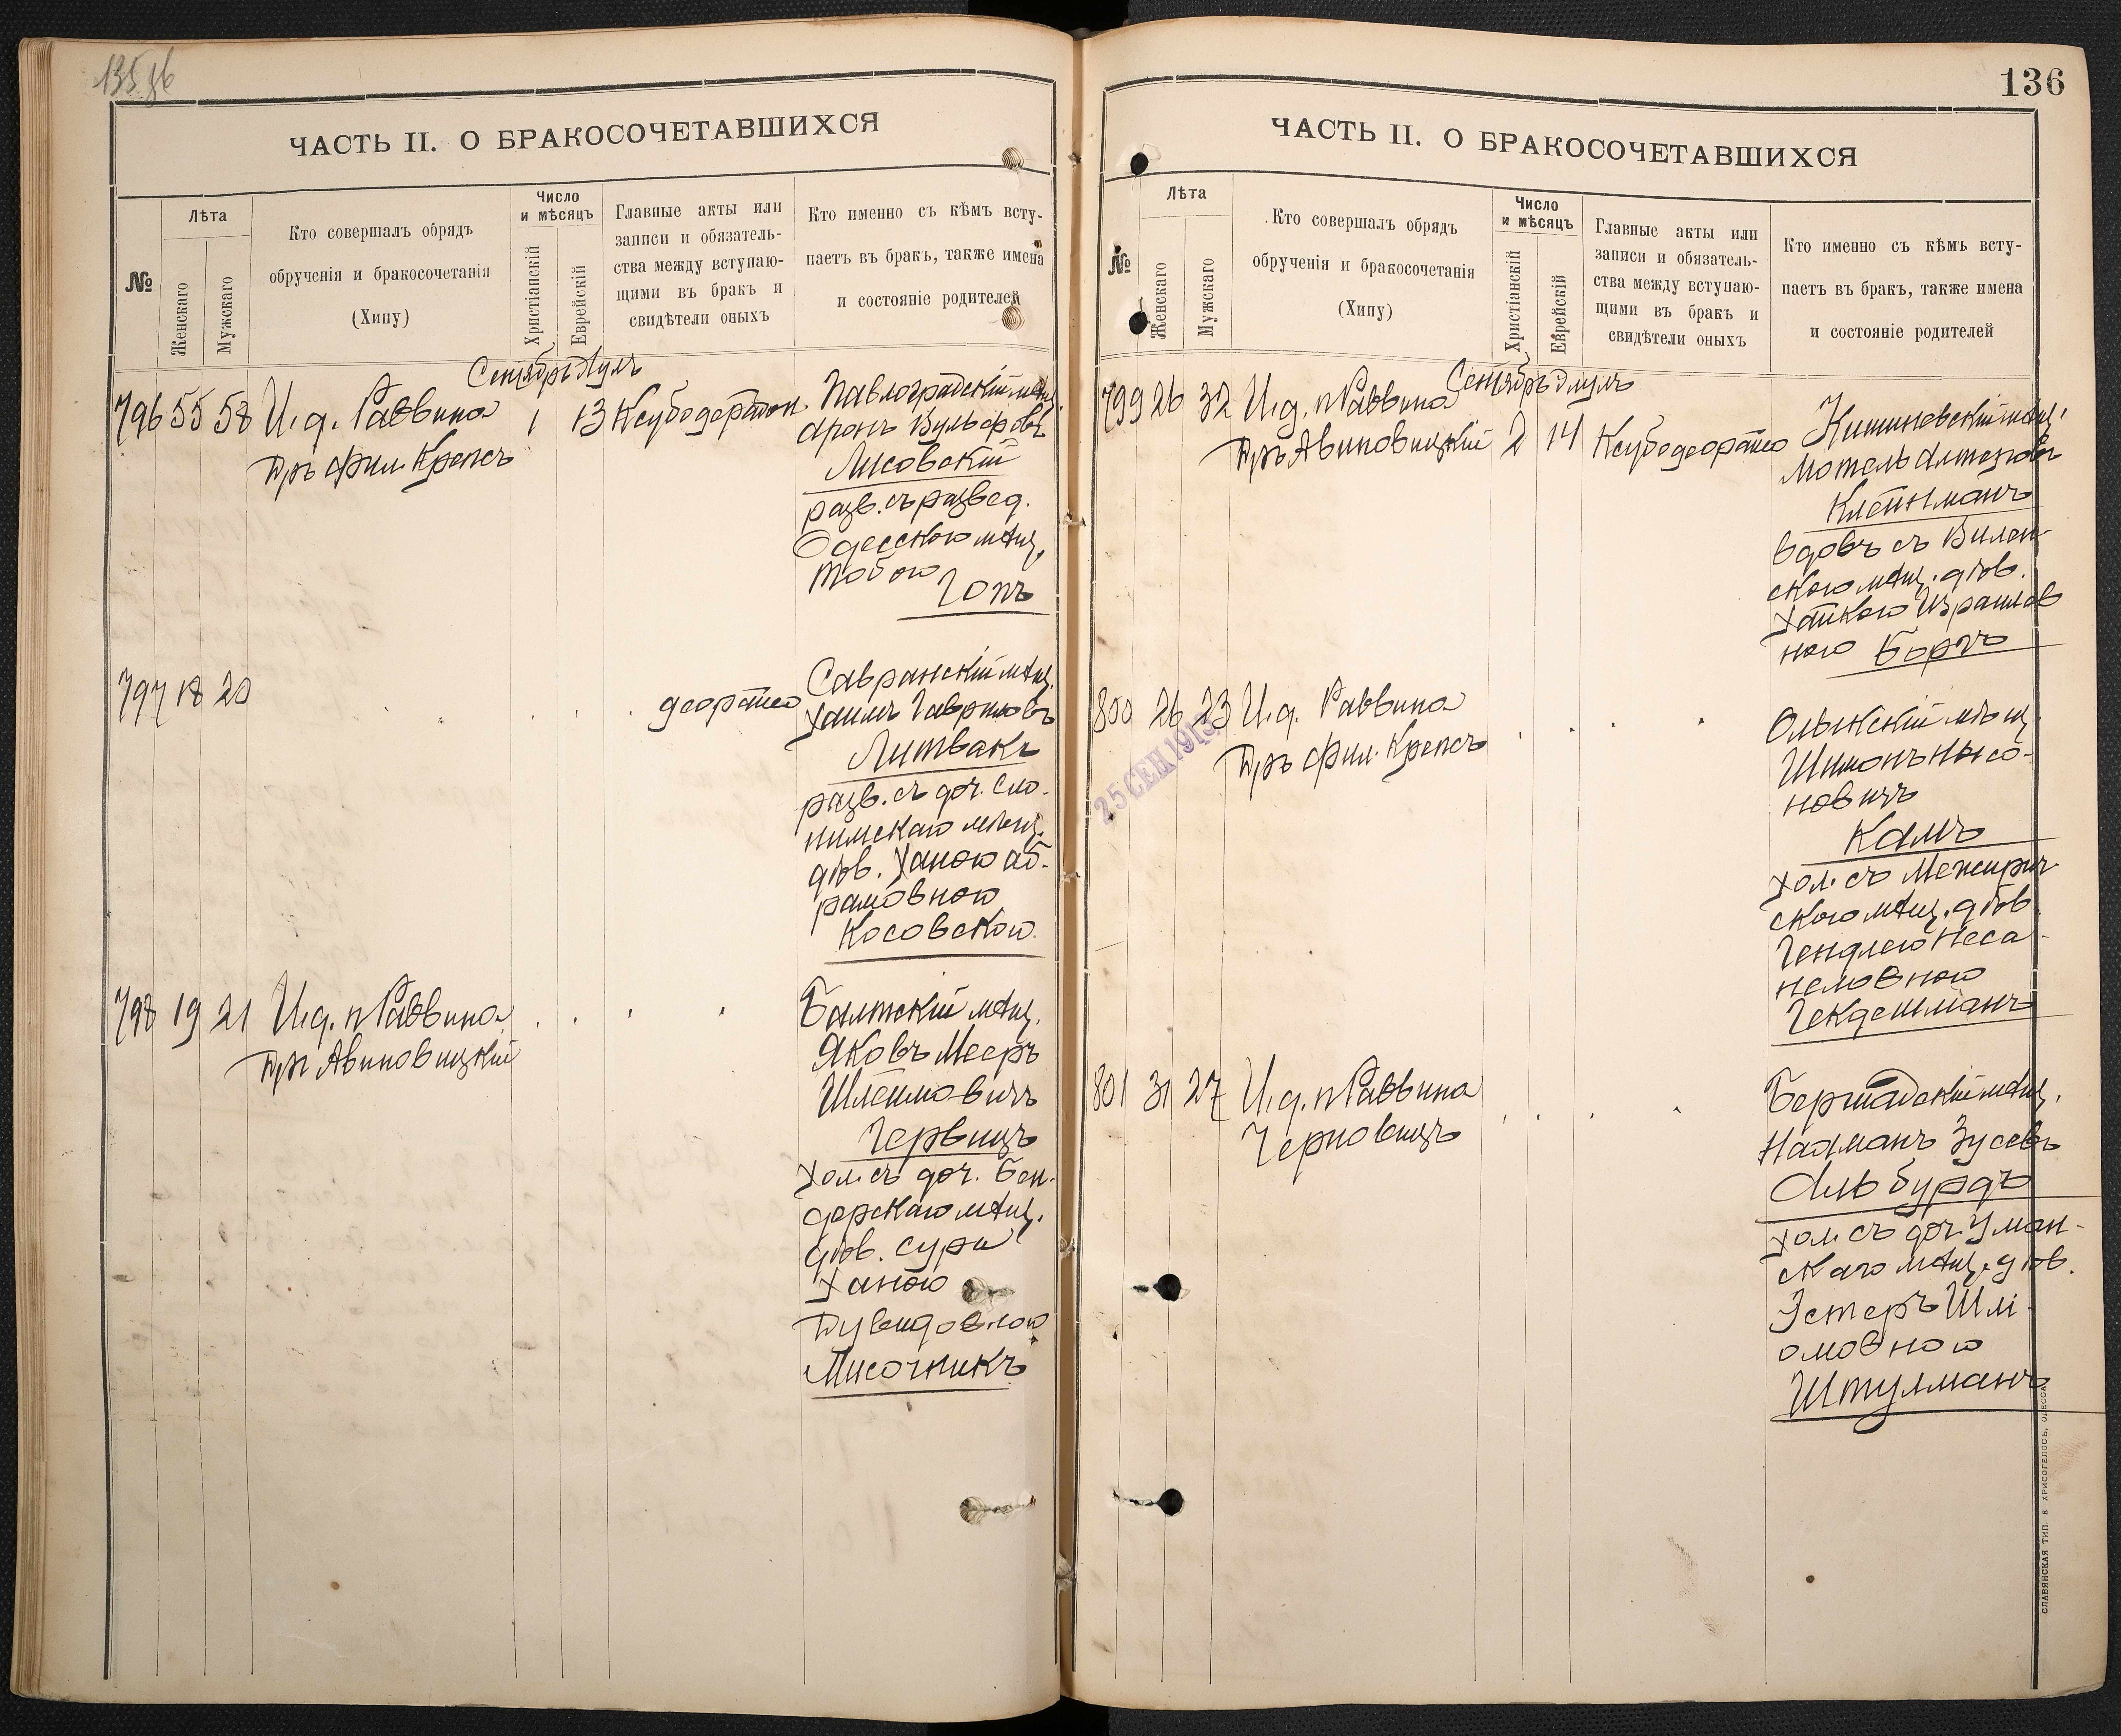 135 об
ЧАСТЬ II. О БРАКОСОЧЕТАВШИХСЯ
№
Лѣта
Женскаго
Мужскаго
Кто совершалъ обрядъ
обрученія и бракосочетанія
(Хипу)
Число
и мѣсяцъ
Христіанскій
Еврейскій
Главные акты или
записи и обязатель-
ства между вступаю-
щими въ бракъ и
свидѣтели оныхъ
Кто именно съ кѣмъ всту-
паетъ въ бракъ, также имена
и состояніе родителей
Сентябрь Элулъ
796 55 58 И. д. Раввина 1 13 Ксубодераton.
Д-ръ Фил. Крепсъ
Павлоградскій мѣщ.
Аронъ Вульфовъ
Лисовскій
разв. съ развед.
Одесскою мѣщ.
Тобою
Гопъ
797 18 20 . . . . деорайсо
Савранскій мѣщ.
Хаимъ Гавриловъ
Литвакъ
разв. съ доч. Сло-
нимскаго мѣщ.
дѣв. Ханою Аб-
рамовною
Косовскою
798 19 21 И. д. п. Раввина . . . .
Д-ръ Авиновицкій
Балтскій мѣщ.
Яковъ Мееръ
Шлёмовичъ
Гервицъ
хол. съ доч. Бен-
дерскаго мѣщ.
дѣв. Сури
Ханою
Дувидовною
Лисочникъ
136
ЧАСТЬ II. О БРАКОСОЧЕТАВШИХСЯ
№
Лѣта
Женскаго
Мужскаго
Кто совершалъ обрядъ
обрученія и бракосочетанія
(Хипу)
Число
и мѣсяцъ
Христіанскій
Еврейскій
Главные акты или
записи и обязатель-
ства между вступаю-
щими въ бракъ и
свидѣтели оныхъ
Кто именно съ кѣмъ всту-
паетъ въ бракъ, также имена
и состояніе родителей
Сентябрь Элулъ
799 26 32 И. д. п. Раввина 2 14 Ксубодеорайсо
Д-ръ Авиновицкій
Кишиневскій мѣщ.
Мотель Алтеровъ
Клейнманъ
вдовъ съ Вилен-
скою мѣщ. дѣв.
Хайкою Израилев
ною Боргъ
800 26 23 И. д. Раввина . . . .
Д-ръ Фил. Крепсъ
25 СЕН 1913
Олыкскій мѣщ.
Шимонъ Нысо-
новичъ
Камъ
хол. съ Межирич-
скою мѣщ. дѣв.
Гендлею Неса-
неловною
Гекдешманъ
801 31 27 И. д. п. Раввина . . . .
Черновицъ
Бершадскій мѣщ.
Нахманъ Зусевъ
Альбурдъ
хол. съ доч. Уман-
скаго мѣщ. дѣв.
Эстеръ Шлі-
омовною
Штулманъ
СЛАВЯНСКАЯ ТИП. Е ХРИСОГЕЛОСЪ, ОДЕССА